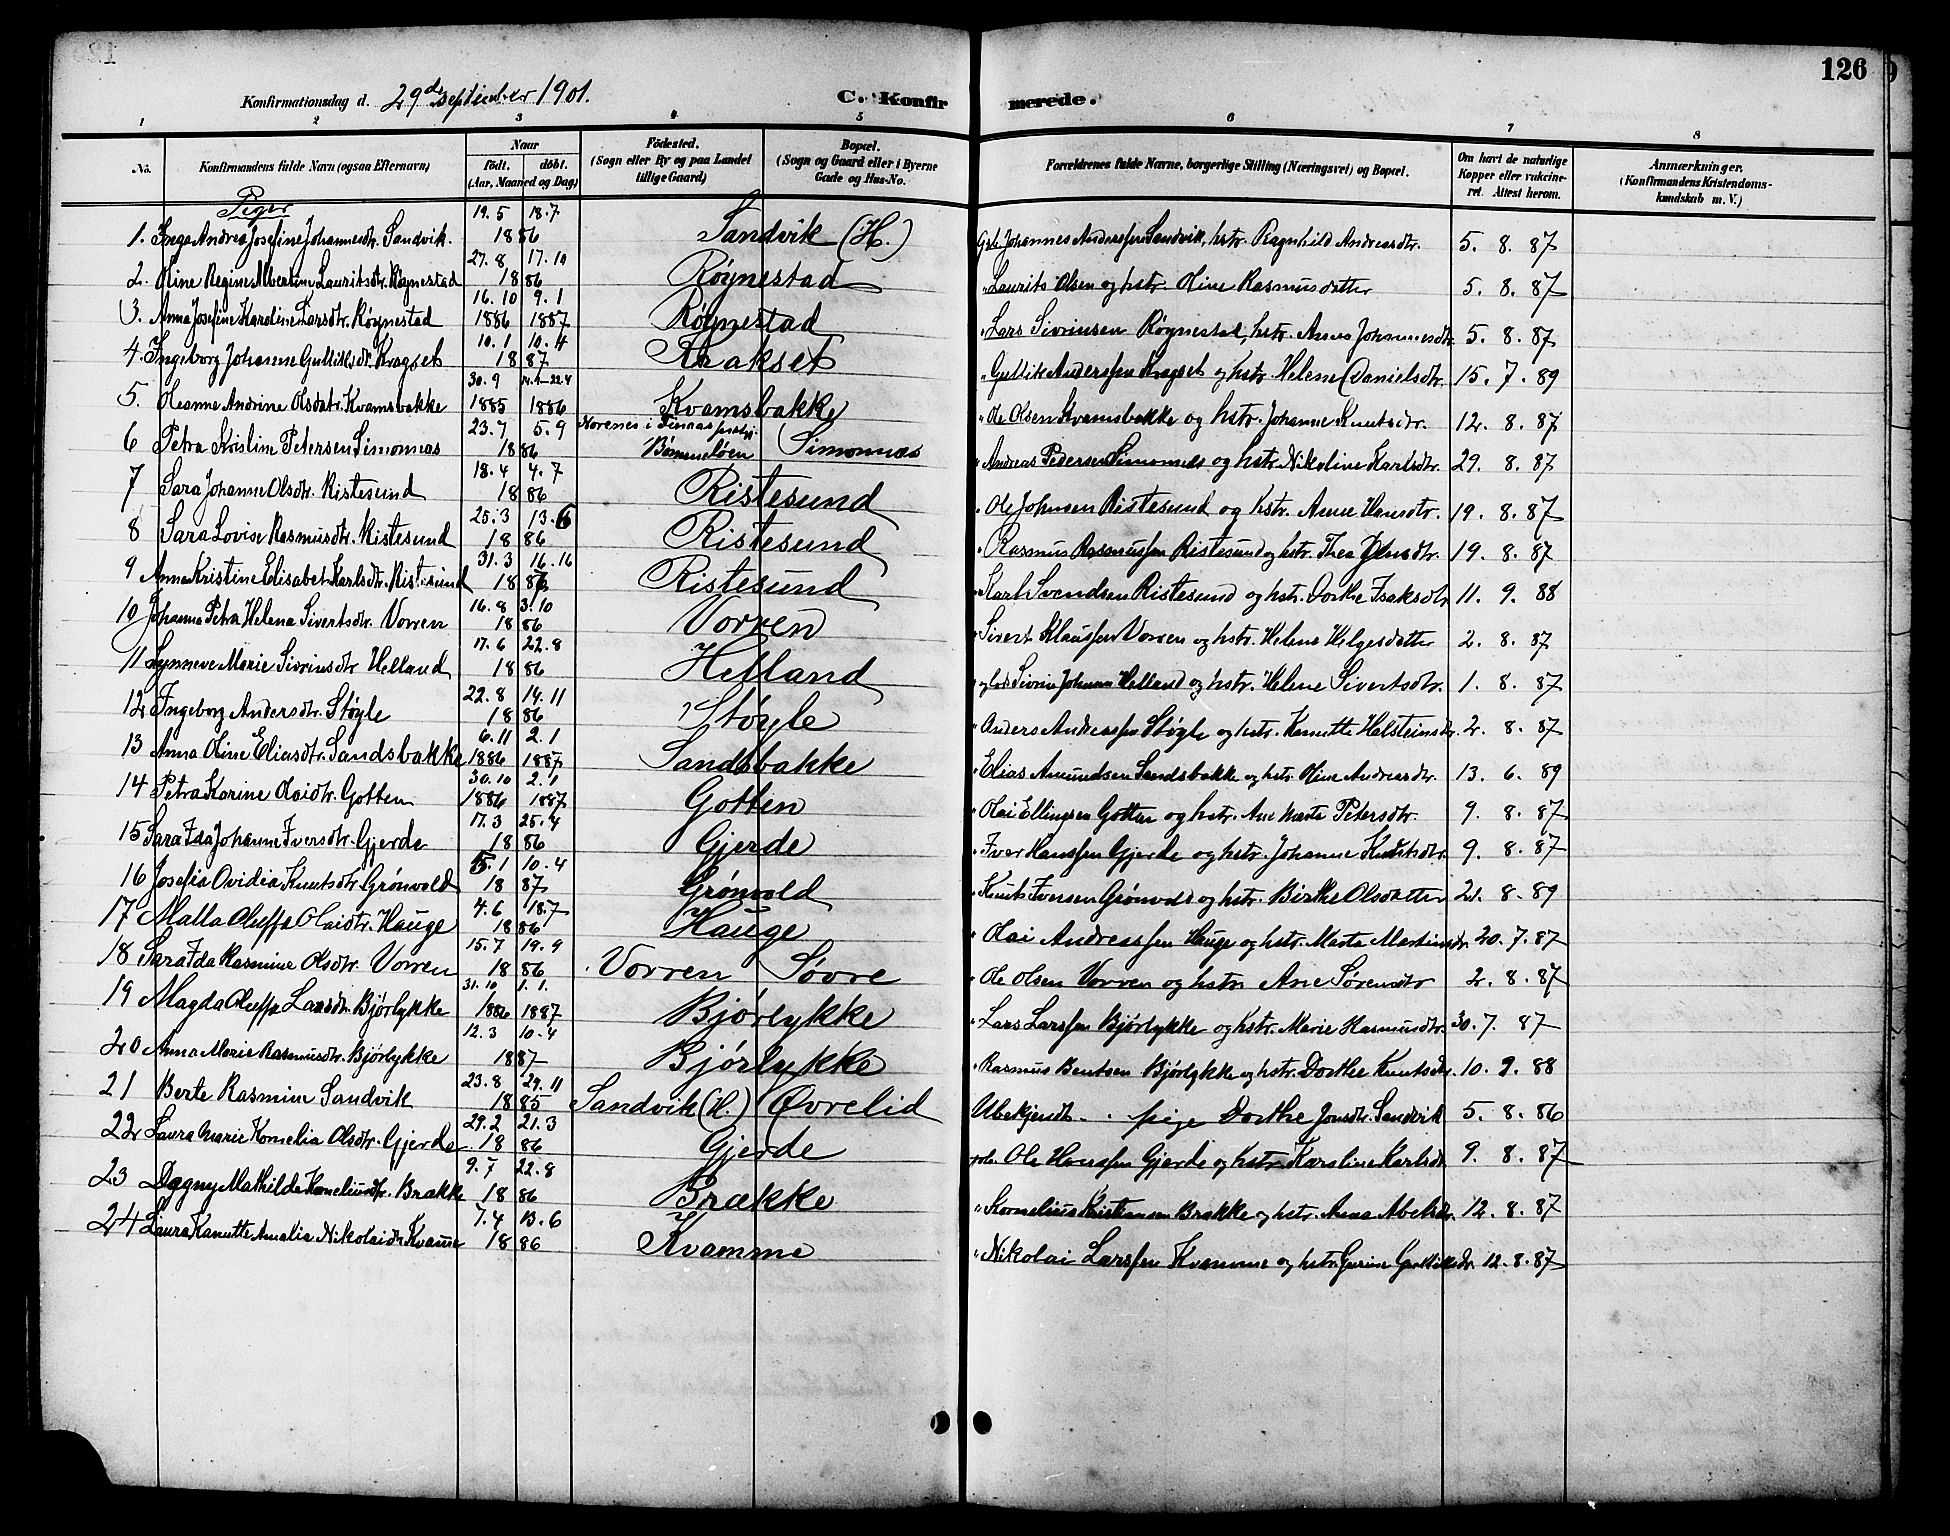 126
Konfirmationsdag d. 29de september 1901.
C. Konfirmerede.
1 2 3 4 5 6 7 8
No.
Konfirmandens fulde Navn (ogsaa Efternavn)
Naar
født. døbt.
(Aar, Maaned og Dag)
Fødested.
(Sogn eller By og paa Landet
tillige Gaard)
Bopæl.
(Sogn og Gaard eller i Byerne
Gade og Hus-No.
Forældrenes fulde Navne, borgerlige Stilling (Næringsvei) og Bopæl.
Om havt de naturlige
Kopper eller vakcine-
ret. Attest herom.
Anmærkninger.
(Konfirmandens Kristendoms-
kundskab m. V.)
Piger
1. Inga Andrea Josefine Johannesdtr. Sandvik. 19.5 18.7 1886 Sandvik (H.) Gbr. Johannes Anderssen Sandvik, hstr. Ragnhild Andreasdtr. 5. 8. 87
2. Oline Regine Albertine Lauritsdtr. Røynestad 27.8 17.10 1886 Røynestad " Laurits Olsen og hstr. Oline Rasmusdatter 5. 8. 87
3. Anna Josefine Karoline Larsdtr. Røynestad 16.10 1886 9.1 1887 Røynestad " Lars Sivrinsen Røynestad, hstr. Anna Johannesdtr. 5. 8. 87
4. Ingeborg Johanne Gulliksdtr. Kragset 10.1 10.4 1887 Krakset " Gullik Anderssen Kragset og hstr. Helene Danielsdtr. 15. 7. 89
5. Oleanne Andrine Olsdtr. Kvamsbakke 30.9 1885 22.4 1886 Kvamsbakke " Ole Olsen Kvamsbakke og hstr. Johanne Knutsdtr. 12. 8. 87
6 Petra Kristine Petersen Simonnæs 23.7 5.9 1886 Bømmeløen Simonnæs " Andreas Pedersen Simonnæs og hstr. Nikoline Karlsdtr. 29. 8. 87
7 Sara Johanne Olsdtr. Ristesund 18.4 4.7 1886 Ristesund " Ole Johnsen Ristesund og hstr. Anne Hansdtr. 19. 8. 87
8 Sara Lovise Rasmusdtr. Ristesund 25.3 13.6 1886 Ristesund " Rasmus Rasmussen Ristesund og hstr. Thea Jensdtr. 19. 8. 87
9 Anna Kristine Elisabet Karlsdtr. Ristesund 31.3 16.16 1886 Ristesund " Karl Svendsen Ristesund og hstr. Dorthe Isaksdtr. 11. 9. 88
10 Johanna Petra Helena Sivertsdtr. Vorren 16.8 3.10 1886 Vorren " Sivert Klaussen Vorren og hstr. Helene Helgesdatter 2. 8. 87
11 Synneve Marie Sivrinsdtr. Helland 17.6 22.8 1886 Helland Sivrin Johnsen Helland og hstr. Helene Sivertsdtr. 1. 8. 87
12 Ingeborg Andersdtr. Støyle 22.8 14.11 1886 Støyle " Anders Andreassen Støyle og hstr. Kanutte Halsteinsdtr. 2. 8. 87
13 Anna Oline Eliasdtr. Sandsbakke 6.11 1886 2.1 1887 Sandsbakke " Elias Amundsen Sandsbakke og hstr. Oline Andreasdtr. 13. 6. 89
14 Petra Karine Olaidtr. Gotten 30.10 1886 2.1 1887 Gotten " Olai Ellingsen Gotten og hstr. Ane Marta Petersdtr. 9. 8. 87
15 Sara Ida Johanne Iversdtr. Gjerde 17.3 25.4 1886 Gjerde " Iver Hanssen Gjerde og hstr. Johanne Knutsdtr. 9. 8. 87
16 Josefia Ovidia Knutsdtr. Grønvold 15.1 10.4 1887 Grønvold " Knut Iversen Grønvold og hstr. Birthe Olsdatter 2. 8. 89
17 Malla Oluffa Olaidtr. Hauge 4.6 18.7 1886 Hauge " Olai Andreassen Hauge og hstr. Marta Martinsdtr. 20. 7. 87
18 Sara Ida Rasmine Olsdtr. Vorren 15.7 19.9 1886 Vorren Søvre " Ole Olsen Vorren og hstr. Ane Sørensdtr 2. 8. 87
19 Magda Oluffa Larsdtr. Bjørlykke 31.10 1886 1.1. 1887 Bjørlykke " Lars Larssen Bjørlykke og hstr. Marie Rasmusdtr. 30. 7. 87
20 Anna Marie Rasmusdtr. Bjørlykke 12.3 10.4 1887 Bjørlykke " Rasmus Bentsen Bjørlykke og hstr. Dorthe Knutsdtr. 10. 9. 88
21 Berte Rasmine Sandvik 23.8 29.11 1885 Sandvik (H.) Øvrelid Ubekjendt . . pige Dorthe Jonsdtr. Sandvik 5. 8. 86
22 Laura Marie Kornelia Olsdtr. Gjerde 29.2 21.3 1886 Gjerde Ole Hanssen Gjerde og hstr. Karoline Karlsdtr. 9. 8. 87
23 Dagny Mathilde Korneliusdtr. Brække 9.7 22.8 1886 Brække " Kornelius Kristiansen Brække og hstr. Anna Abelsdtr. 12. 8. 87
24 Laura Kanutte Amalia Nikolaidtr. Kvamme 7.4 13.6 1886 Kvamme " Nikolai Larssen Kvamme og hstr. Gurine Gulliksdtr. 12. 8. 87